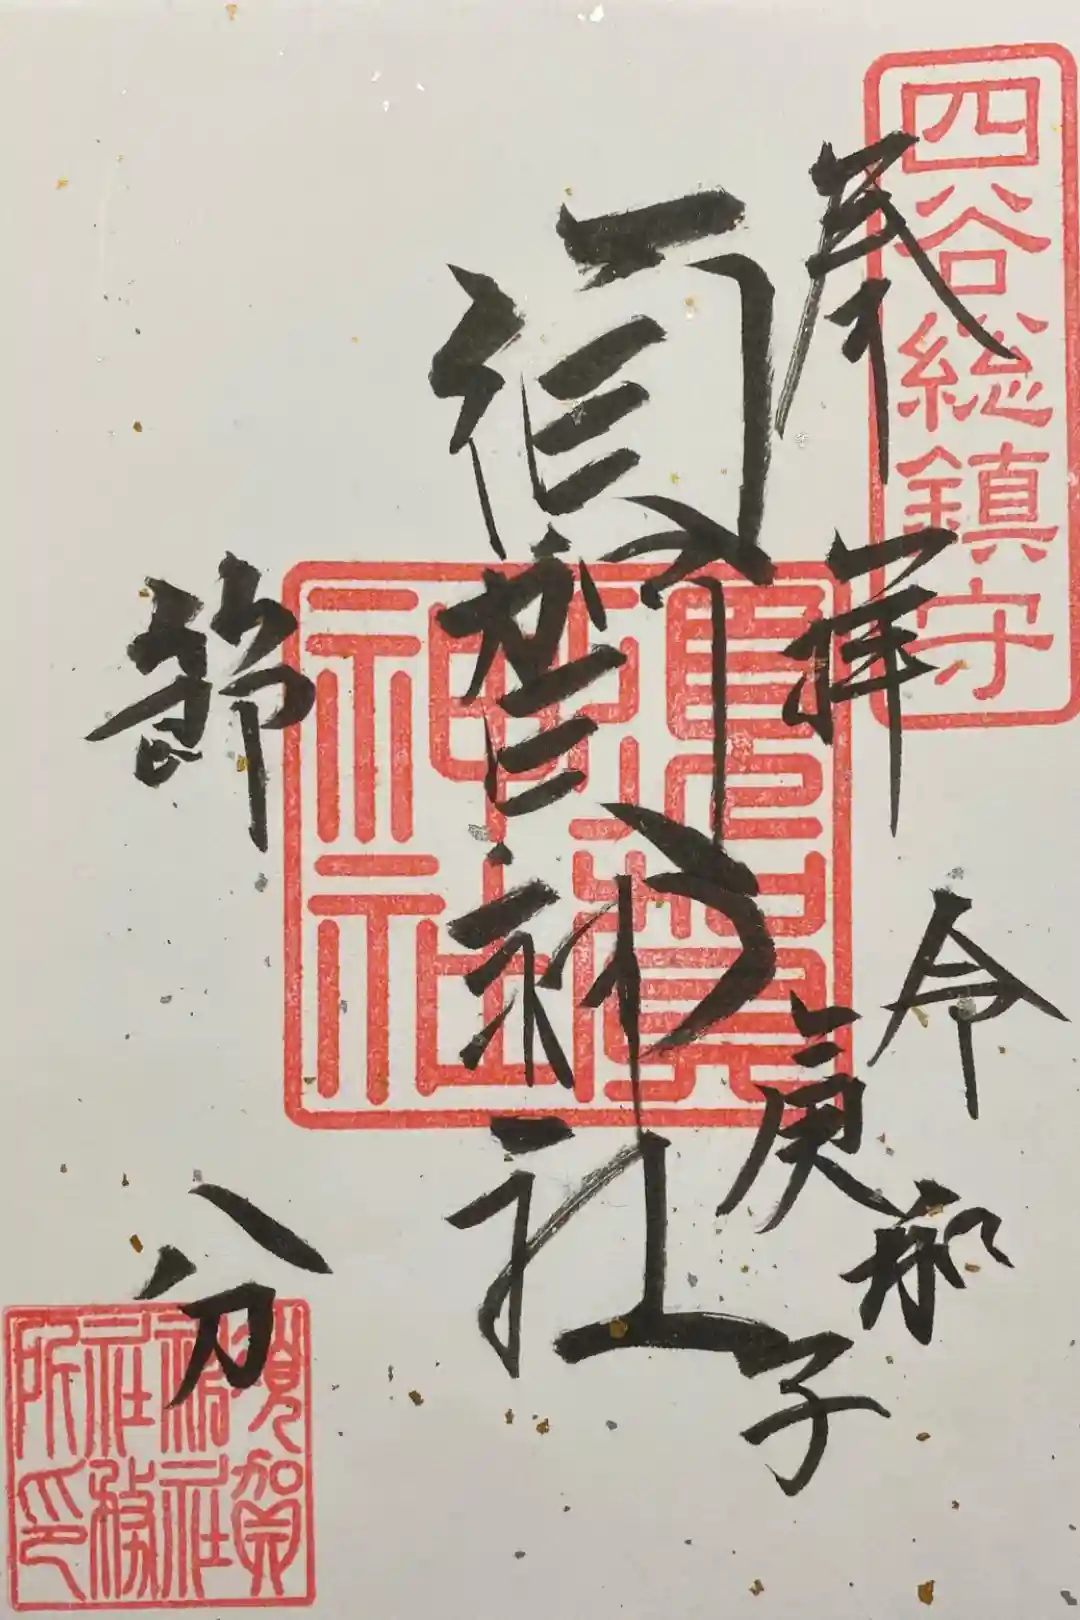 四谷総鎮守
奉拝
令和
庚子
須賀神社
須賀神社
節分
須賀
神社
社務
所印